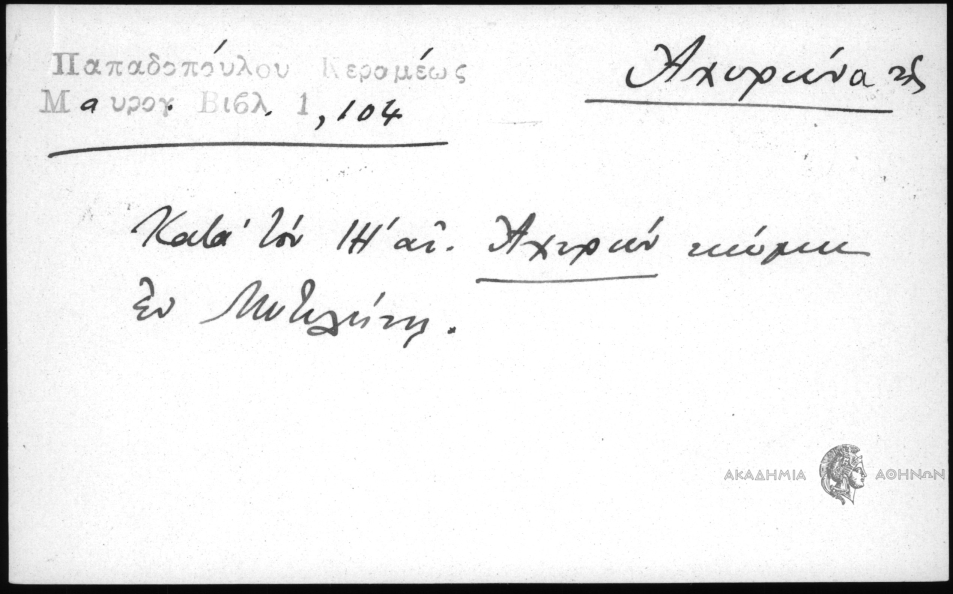 Παπαδοπούλου Κεραμέως
Μαυρογ. Βιβλ. 1, 104
Ἀχυρώνα τῆς
Κατὰ τὸν ΙΗ' αἰ. Ἀχυρών κώμη
ἐν Μυτιλήνῃ.
ΑΚΑΔΗΜΙΑ ΑΘΗΝΩΝ